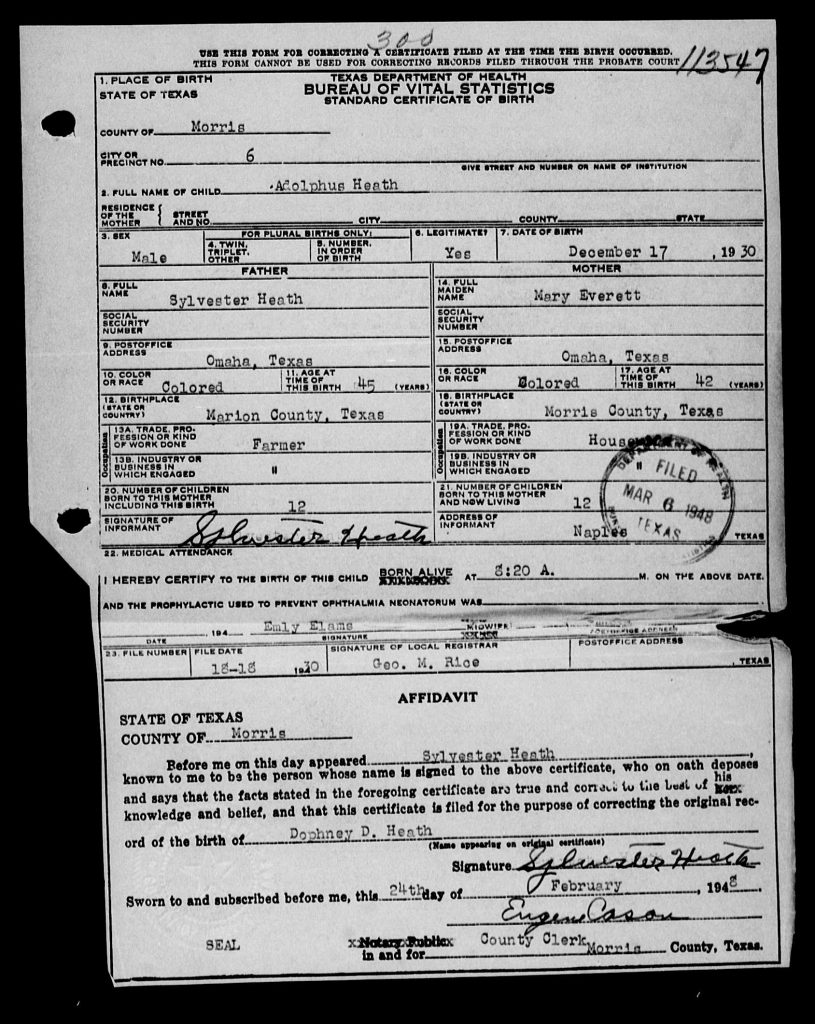 300
USE THIS FORM FOR CORRECTING A CERTIFICATE FILED AT THE TIME THE BIRTH OCCURRED.
THIS FORM CANNOT BE USED FOR CORRECTING RECORDS FILED THROUGH THE PROBATE COURT
113547
1. PLACE OF BIRTH
STATE OF TEXAS
TEXAS DEPARTMENT OF HEALTH
BUREAU OF VITAL STATISTICS
STANDARD CERTIFICATE OF BIRTH
COUNTY OF Morris
CITY OR PRECINCT NO. 6
GIVE STREET AND NUMBER OR NAME OF INSTITUTION
2. FULL NAME OF CHILD Adolphus Heath
RESIDENCE OF THE MOTHER { STREET AND NO. CITY COUNTY STATE
3. SEX Male
FOR PLURAL BIRTHS ONLY:
4. TWIN, TRIPLET, OTHER
5. NUMBER, IN ORDER OF BIRTH
6. LEGITIMATE? Yes
7. DATE OF BIRTH December 17, 1930
FATHER
MOTHER
8. FULL NAME Sylvester Heath
14. FULL MAIDEN NAME Mary Everett
SOCIAL SECURITY NUMBER
SOCIAL SECURITY NUMBER
9. POSTOFFICE ADDRESS Omaha, Texas
15. POSTOFFICE ADDRESS Omaha, Texas
10. COLOR OR RACE Colored
11. AGE AT TIME OF THIS BIRTH 45 (YEARS)
16. COLOR OR RACE Colored
17. AGE AT TIME OF THIS BIRTH 42 (YEARS)
12. BIRTHPLACE (STATE OR COUNTRY) Marion County, Texas
18. BIRTHPLACE (STATE OR COUNTRY) Morris County, Texas
Occupation
13A. TRADE, PROFESSION OR KIND OF WORK DONE Farmer
13B. INDUSTRY OR BUSINESS IN WHICH ENGAGED "
Occupation
19A. TRADE, PROFESSION OR KIND OF WORK DONE
19B. INDUSTRY OR BUSINESS IN WHICH ENGAGED "
DEPARTMENT OF HEALTH
FILED
MAR 6 1948
TEXAS
20. NUMBER OF CHILDREN BORN TO THIS MOTHER INCLUDING THIS BIRTH 12
21. NUMBER OF CHILDREN BORN TO THIS MOTHER AND NOW LIVING 12
SIGNATURE OF INFORMANT Sylvester Heath
ADDRESS OF INFORMANT Naples TEXAS
22. MEDICAL ATTENDANCE
I HEREBY CERTIFY TO THE BIRTH OF THIS CHILD BORN ALIVE AT 8:20 A. M. ON THE ABOVE DATE.
AND THE PROPHYLACTIC USED TO PREVENT OPHTHALMIA NEONATORUM WAS
194 Emly Elams MIDWIFE
DATE SIGNATURE POSTOFFICE ADDRESS
23. FILE NUMBER
FILE DATE 18-18 1930
SIGNATURE OF LOCAL REGISTRAR Geo. M. Rice
POSTOFFICE ADDRESS , TEXAS
AFFIDAVIT
STATE OF TEXAS
COUNTY OF Morris
Before me on this day appeared Sylvester Heath,
known to me to be the person whose name is signed to the above certificate, who on oath deposes
and says that the facts stated in the foregoing certificate are true and correct to the best of his
knowledge and belief, and that this certificate is filed for the purpose of correcting the original rec-
ord of the birth of Dophney D. Heath
(Name appearing on original certificate)
Signature Sylvester Heath
Sworn to and subscribed before me, this 24th day of February, 1948.
Eugene Cason
SEAL
Notary Public County Clerk
in and for Morris County, Texas.